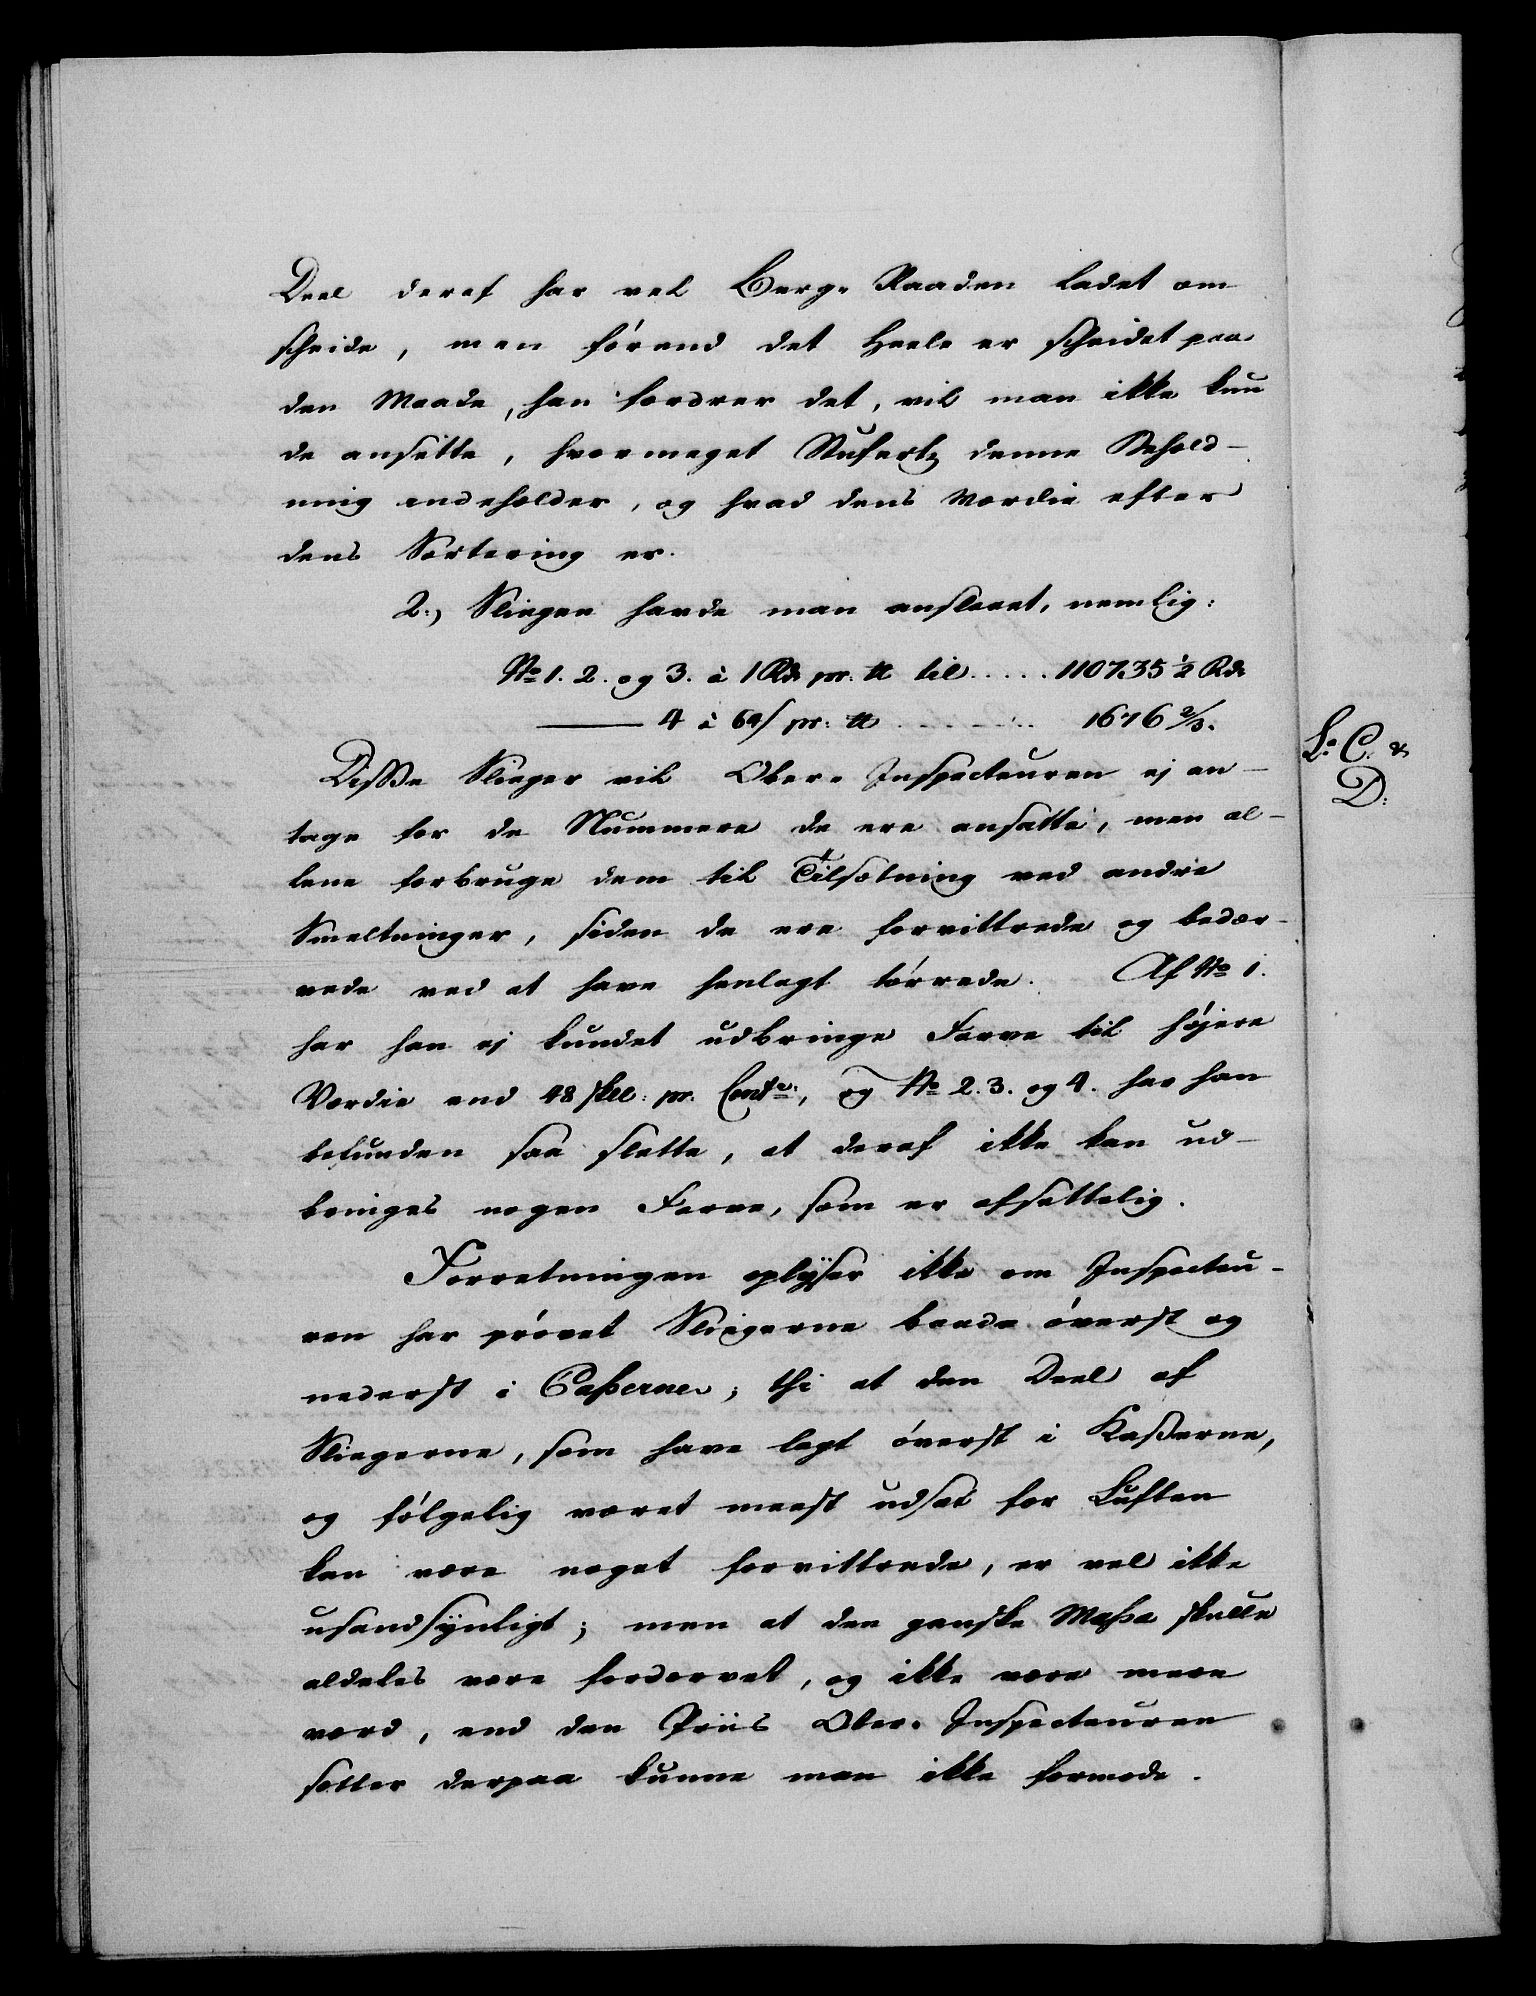 Deel deraf har vel Berg-Raaden ladet om
scheide, men förend det Heele er scheidet paa
den Maade, han fordrer det, vil man ikke kun
de ansætte, hvormeget Stufertz denne Behold-
ning indeholder, og hvad dens Værdie efter
dens Sortering er.
2.) Sliegen havde man anslaaet, nemlig:
No 1. 2. og 3. à 1 Rdr pr. tt til ..... 110735 1/2 Rdr
——— 4 à 64 s pr: tt ....... 1676 2/3.
Disse Slieger vil Ober-Inspecteuren ej an-
tage for de Nummere de ere ansatte, men al-
lene forbruge dem til Tilsætning ved andre
Smeltninger, siden de ere forvittrede og bedær-
vede ved at have henlagt törrede. Af No 1.
har han ej kundet udbringe Farve til höjere
Værdie end 48 skll: pr. Centr:, og No 2. 3. og 4. har han
befunden saa slette, at deraf ikke kan ud-
bringes nogen Farve, som er afsettelig.
Forretningen oplÿser ikke om Inspecteu-
ren har prövet Sliegerne baade överst og
nederst i Casserne; thi at den Deel af
Sliegerne, som have lagt överst i Kasserne,
og fölgelig været meest udsat for Luften
kan være noget forvittrede, er vel ikke
usandsÿnligt; men at den ganske Massa skulle
aldeles være fordærvet, og ikke være meere
værd, end den Priis Ober-Inspecteuren
sætter derpaa kunne man ikke formode.
La C. &
D: